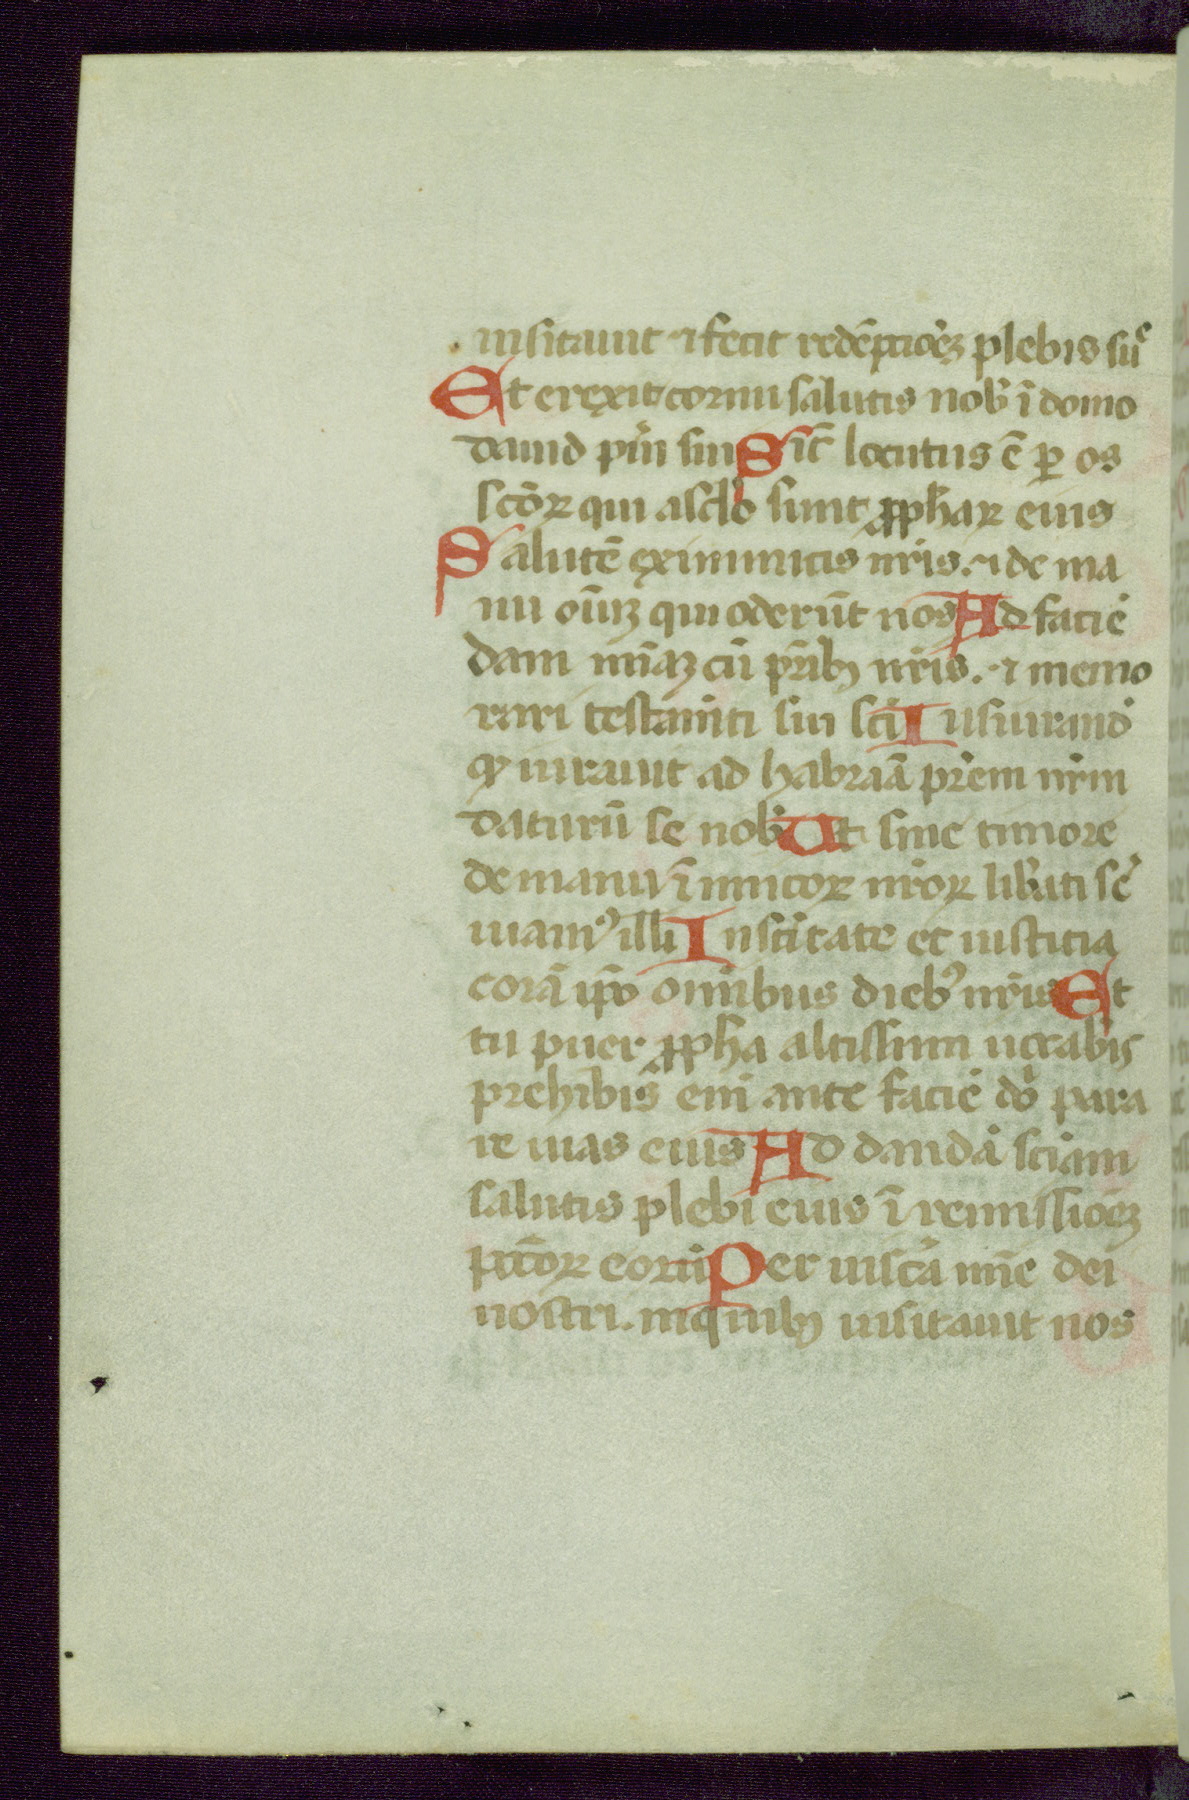 uisitauit ⁊ fecit redēptiōeꝫ plebis suͤ
Et erexit cornu salutis nob̾ ī domo
dauid pu̾i sui Sic̄ locutus ē ꝑ os
scōꝝ qui a sc̄lo sunt ꝓpħaꝝ eius
Salutē ex inimicis nr̄is. ⁊ de ma
nu oīuꝫ qui oderūt nos Ad faciē
dam mīaꝫ cū pr̄ibꝫ nr̄is. ⁊ memo
rari testam̄ti sui sc̄i Iusiurand̾
qͦ iurauit ad habraā pr̄em nr̄m
daturū se nob̾ Ut sine timore
de manu īimicoꝝ nr̄oꝝ lib̾ati s̾
uiamꝰ illi In sc̄itate et iustitia
corā ip̄o omībus diebꝰ nr̄is Et
tu puer ꝓpħa altissimi uocab̾is
prehibis eni ante faciē dn̄i para
re uias eius Ad dandā sciām
salutis plebi eius ī remissiōeꝫ
pcc̄oꝝ eorū Per uisc̾a mīe dei
nostri. in quibꝫ uisitauit nos